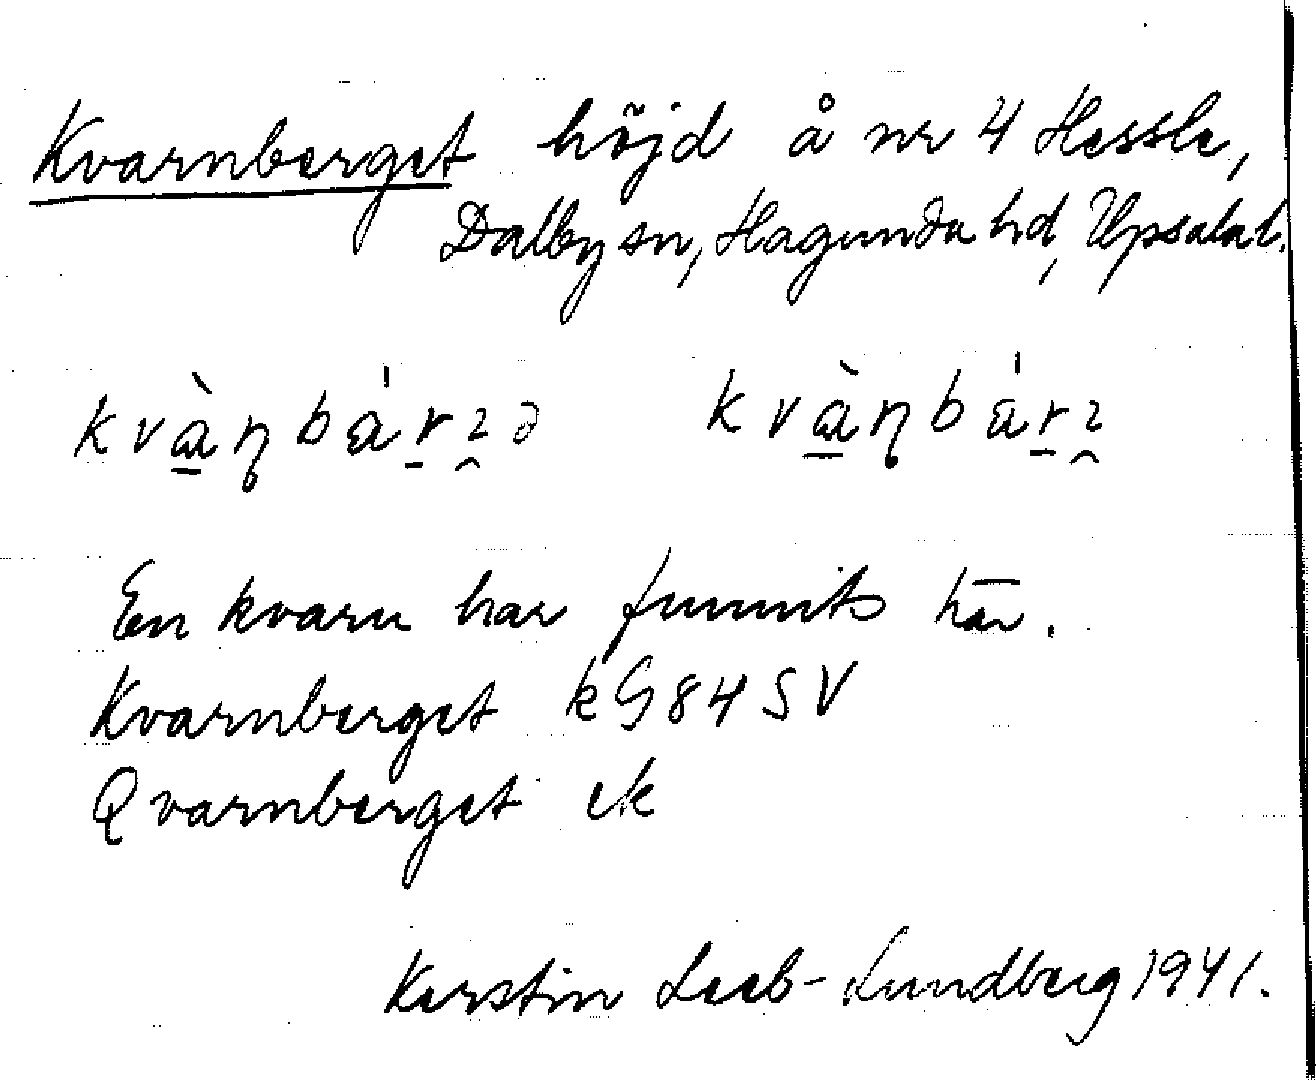 Kvarnberget höjd å nr 4 Hessle,
Dalby sn, Hagunda hd, Upsalal.
En kvarn har funnits här.
Kvarnberget kG84SV
Qvarnberget ek
Kerstin Leeb-Lundberg 1941.